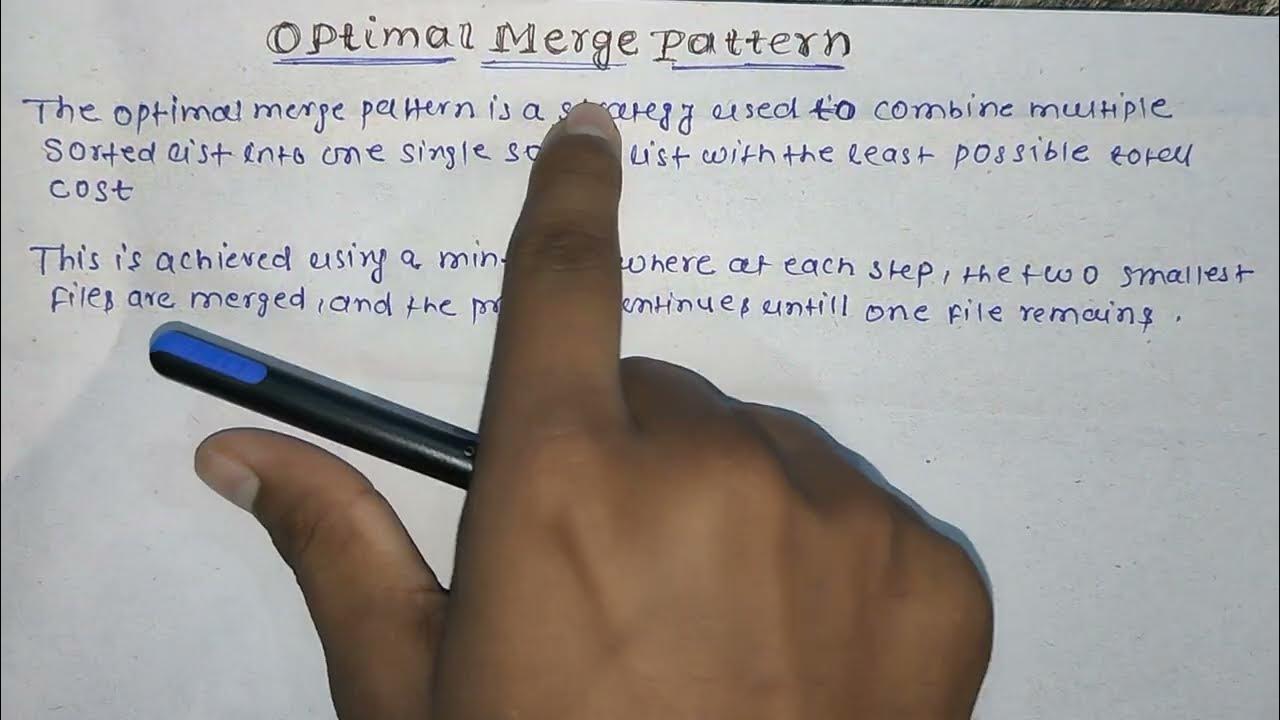 Optimal Merge Pattern
The optimal merge pattern is a strategy used to combine multiple
sorted list into one single list with the least possible totall
cost
This is achieved using a min- where at each step, the two smallest
files are merged, and the continues untill one file remains.